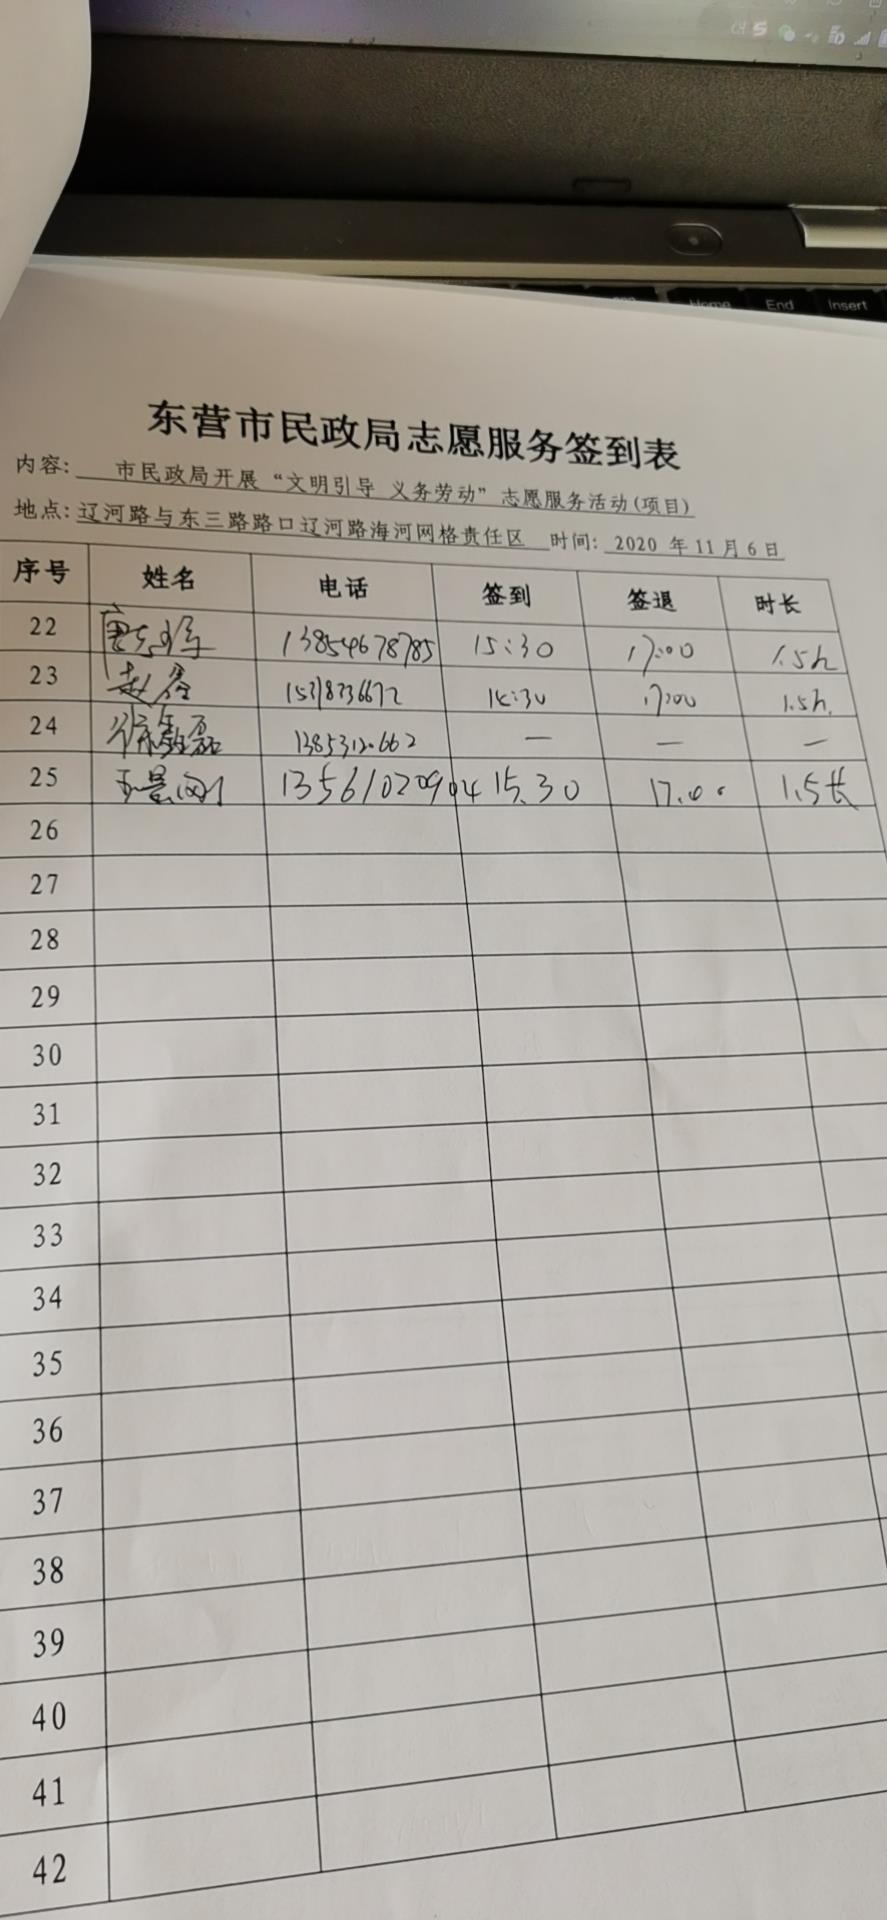 Home End Insert
东营市民政局志愿服务签到表
内容: 市民政局开展“文明引导 义务劳动”志愿服务活动(项目)
地点: 辽河路与东三路路口辽河路海河网格责任区 时间: 2020 年 11 月 6 日
序号 姓名 电话 签到 签退 时长
22 13854678785 15:30 17:00 1.5h
23 赵 17:00 1.5h.
24 徐 磊 — — —
25 景刚 13561020904 15.30 17.00 1.5长
26
27
28
29
30
31
32
33
34
35
36
37
38
39
40
41
42